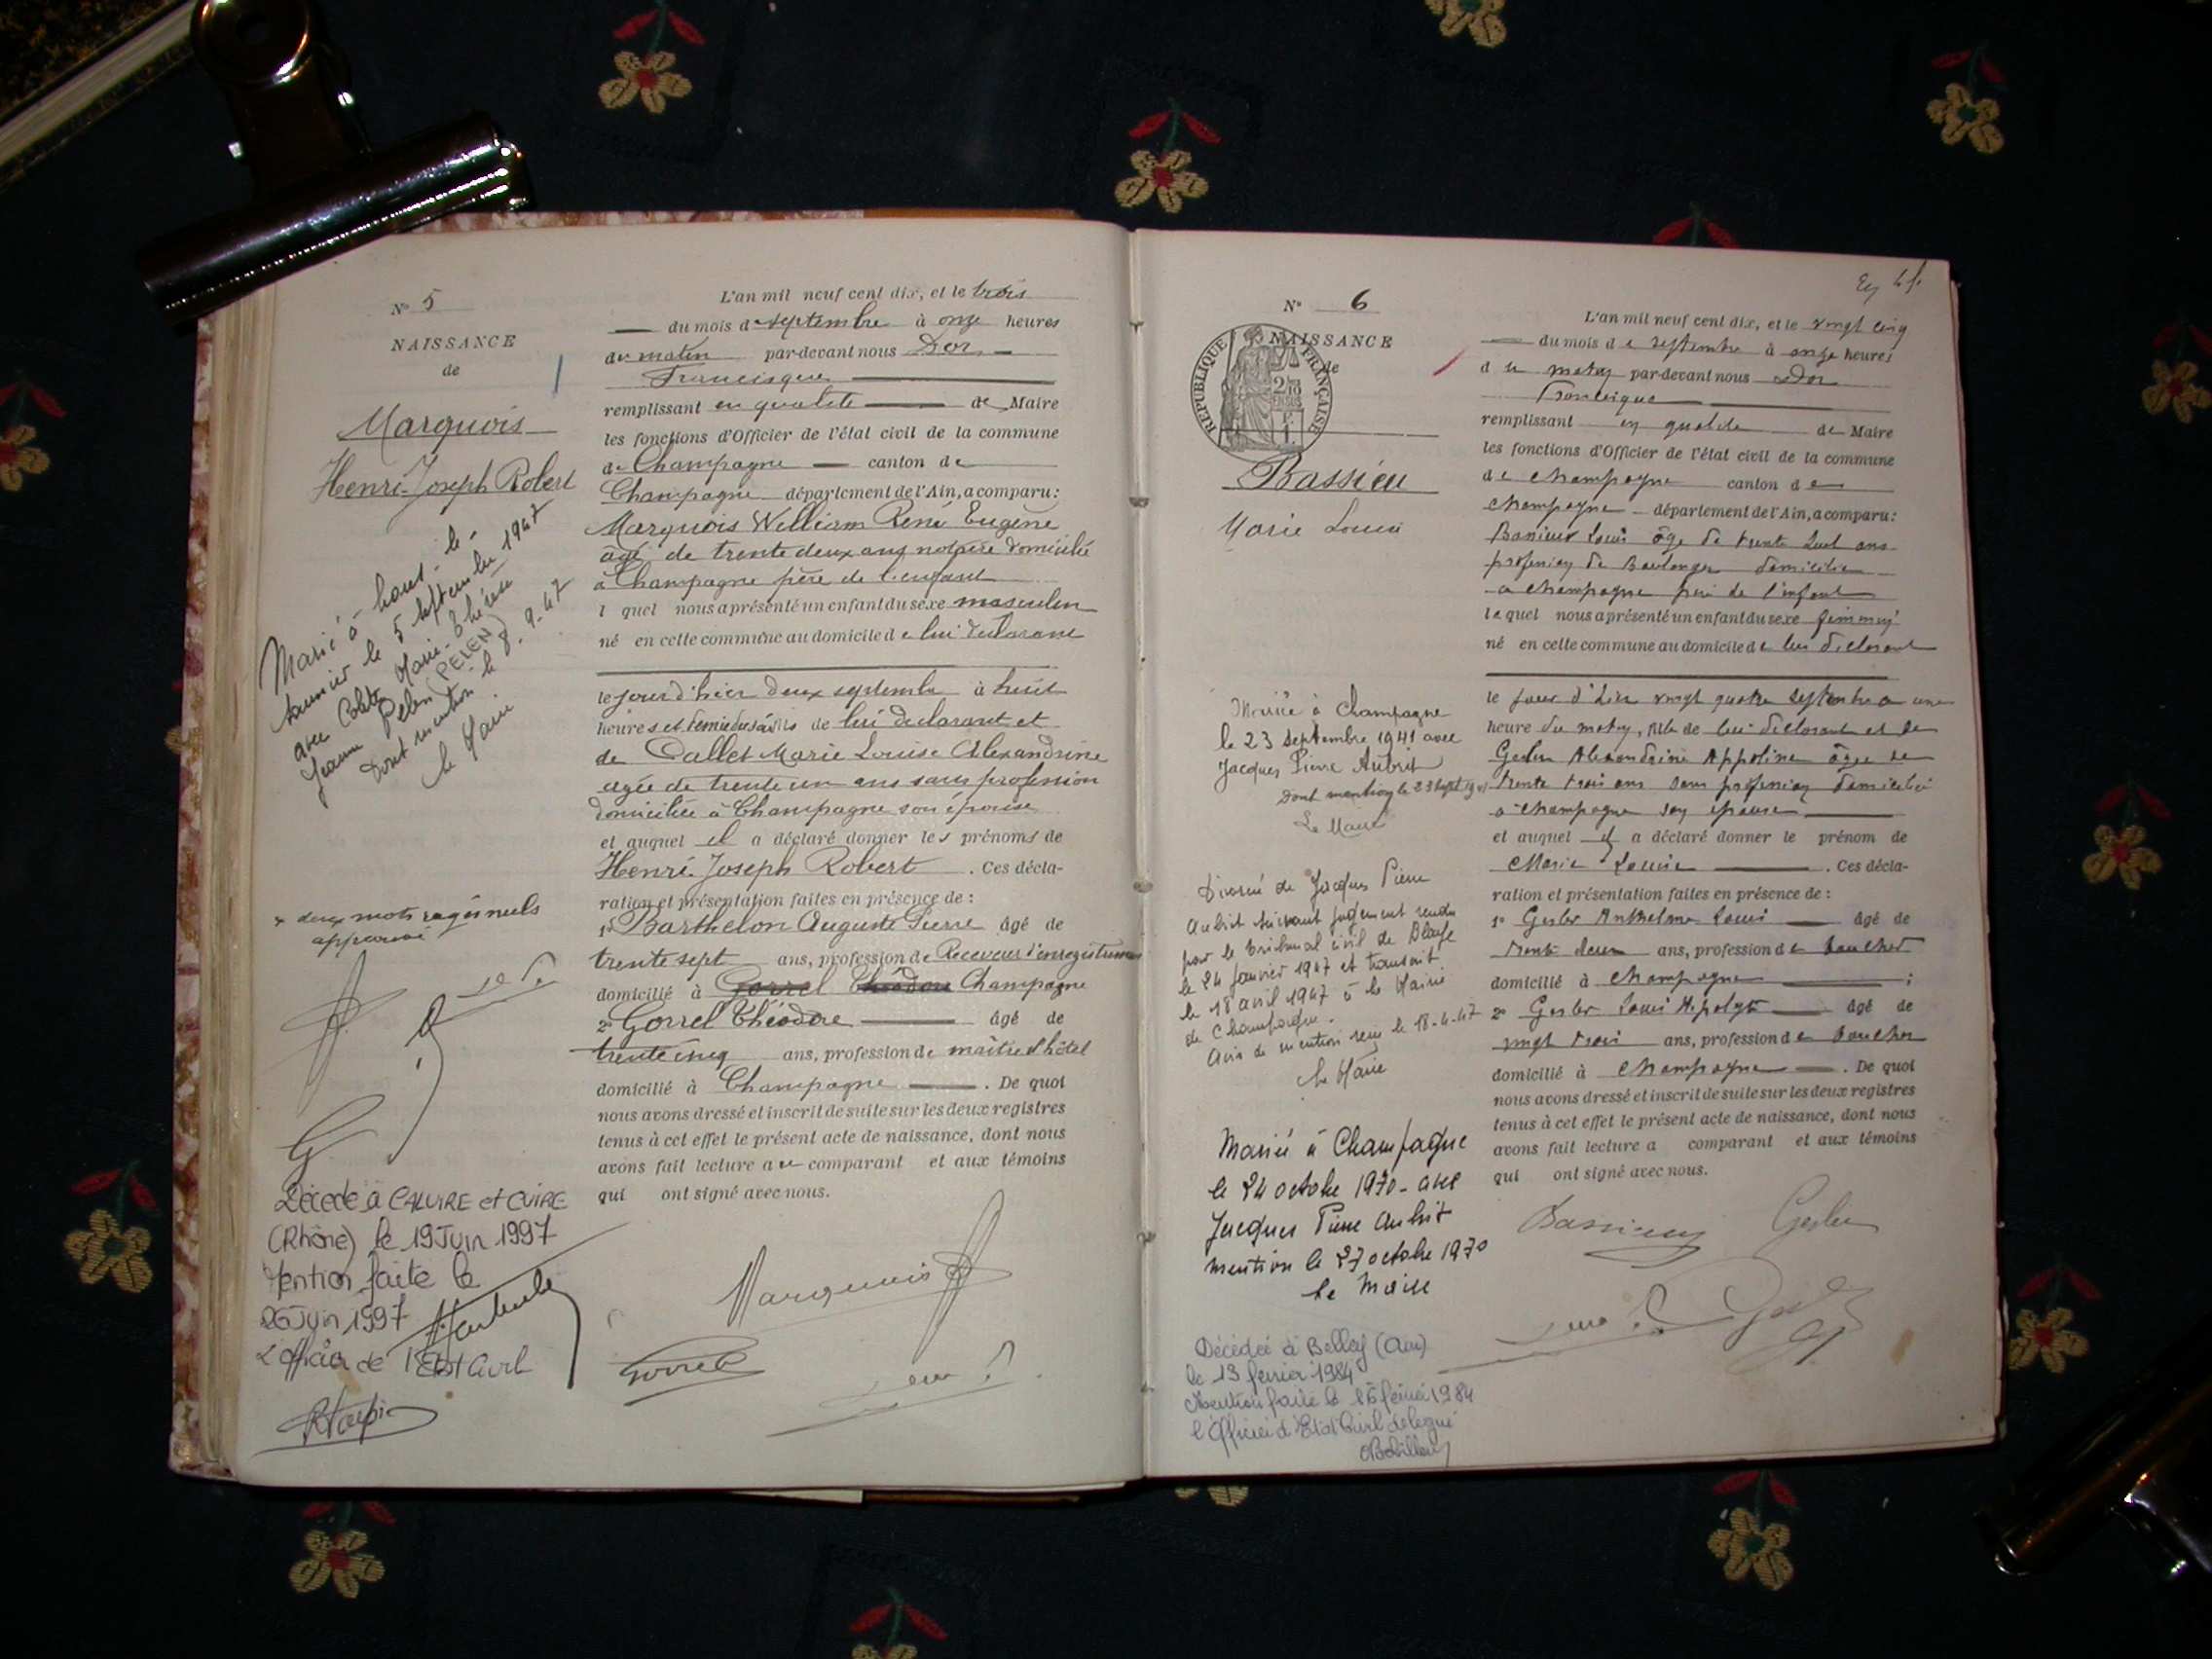 N° 5
NAISSANCE
de
Marquois
Henri-Joseph Robert
Marié à
le 5 septembre 1947
avec Colette Marie-Thérèse
Jeanne Pelen (PELEN)
Dont mention le 8.9.47
Le Maire
deux mots rayés nuls
approuvé
Décédé à CALUIRE et CUIRE
(Rhône) le 19 Juin 1997
Mention faite le
26 Juin 1997
L'officier de l'Etat Civil
L'an mil neuf cent dix, et le trois
du mois de septembre à onze heures
du matin par-devant nous Dor
Francisque
remplissant en qualité de Maire
les fonctions d'Officier de l'état civil de la commune
de Champagne canton de
Champagne département de l'Ain, a comparu:
Marquois William René Eugène
âgé de trente deux ans notaire domicilié
à Champagne père de l'enfant
l quel nous a présenté un enfant du sexe masculin
né en cette commune au domicile de lui déclarant
le jour d'hier deux septembre à huit
heures et demie du soir de lui déclarant et
de Dallet Marie Louise Alexandrine
agée de trente un ans sans profession
domiciliée à Champagne son épouse
et auquel il a déclaré donner les prénoms de
Henri Joseph Robert . Ces décla-
ration et présentation faites en présence de :
1° Barthelon Auguste Pierre âgé de
trente sept ans, profession de Receveur d'enregistrement
domicilié à Gorrel Théodore Champagne
2° Gorrel Théodore âgé de
trente cinq ans, profession de maître d'hôtel
domicilié à Champagne . De quoi
nous avons dressé et inscrit de suite sur les deux registres
tenus à cet effet le présent acte de naissance, dont nous
avons fait lecture au comparant et aux témoins
qui ont signé avec nous.
Marquois
Gorrel
N° 6
NAISSANCE
de
REPUBLIQUE FRANÇAISE
Bassieu
Marie Louise
Mariée à Champagne
le 23 septembre 1941 avec
Jacques Pierre Aubrit
Dont mention le 23 sept 1941
Le Maire
Divorcée de Jacques Pierre
Aubrit suivant jugement rendu
par le tribunal civil de Blaye
le 24 Janvier 1947 et transcrit
le 18 avril 1947 à la Mairie
de Champagne.
Avis de mention reçu le 18-4-47
Le Maire
Mariée à Champagne
le 24 octobre 1970 - avec
Jacques Pierre Aubrit
mention le 27 octobre 1970
Le Maire
Décédée à Belley (Ain)
le 13 février 1984
Mention faite le 16 février 1984
l'Officier d'Etat Civil délégué
L'an mil neuf cent dix, et le vingt cinq
du mois de septembre à onze heures
du matin par-devant nous Dor
Francisque
remplissant en qualité de Maire
les fonctions d'Officier de l'état civil de la commune
de Champagne canton de
Champagne département de l'Ain, a comparu:
Bassieux Louis âgé de trente huit ans
profession de Boulanger domicilié
a Champagne père de l'enfant
lequel nous a présenté un enfant du sexe
né en cette commune au domicile de lui déclarant
le jour d'hier vingt quatre septembre a une
heure du matin, née de lui déclarant et de
Gesler Alexandrine Appoline âgée de
trente trois ans sans profession domiciliée
à Champagne son épouse
et auquel il a déclaré donner le prénom de
Marie Louise . Ces décla-
ration et présentation faites en présence de :
1° Gesler Anthelme Louis âgé de
trente deux ans, profession de boucher
domicilié à Champagne ;
2° Gesler Louis Hipolyte âgé de
vingt trois ans, profession de boucher
domicilié à Champagne . De quoi
nous avons dressé et inscrit de suite sur les deux registres
tenus à cet effet le présent acte de naissance, dont nous
avons fait lecture a comparant et aux témoins
qui ont signé avec nous.
Bassieux Gesler